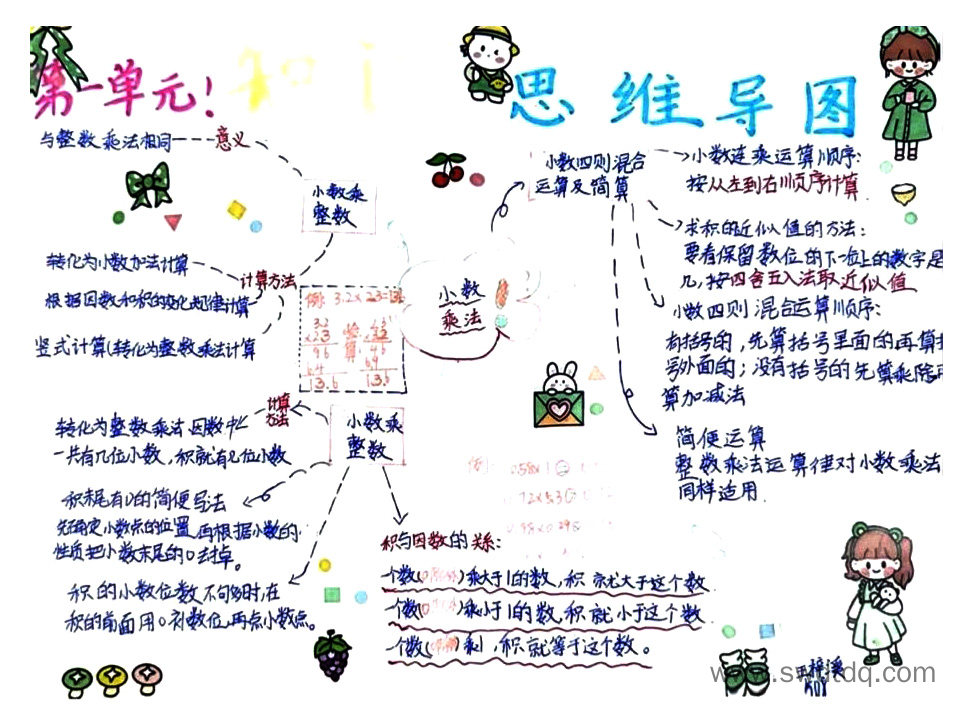 第一单元!
思维导图
与整数乘法相同
意义
小数乘
整数
转化为小数加法计算
计算方法
根据因数和积的变化规律计算
竖式计算(转化为整数乘法计算
例: 3.2×2.3=
小数
乘法
小数四则混合
运算及简算
小数连乘运算顺序:
按从左到右顺序计算
求积的近似值的方法:
要看保留数位的下一位上的数字是
几,按四舍五入法取近似值
小数四则混合运算顺序:
有括号的,先算括号里面的再算
号外面的;没有括号的先算乘除
算加减法
简便运算
整数乘法运算律对小数乘法
同样适用.
计算
方法
小数乘
整数
转化为整数乘法因数中
一共有几位小数,积就有几位小数
积末尾有0的简便写法
先确定小数点的位置,再根据小数的
性质把小数末尾的0去掉。
积的小数位数不够时,在
积的前面用0补数位,再点小数点。
例:
积与因数的关系:
一个数( )乘大于1的数,积就大于这个数
一个数( )乘小于1的数,积就小于这个数
一个数( )乘1,积就等于这个数。